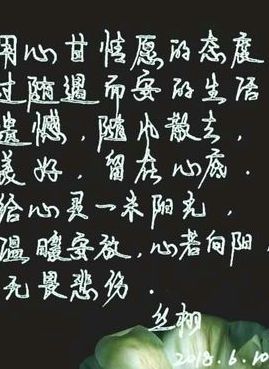 用心甘情愿的态度
过随遇而安的生活
遗憾，随风散去，
美好，留在心底．
给心灵一米阳光，
温暖安放，心若向阳，
无畏悲伤．
丝栩
2018.6.10